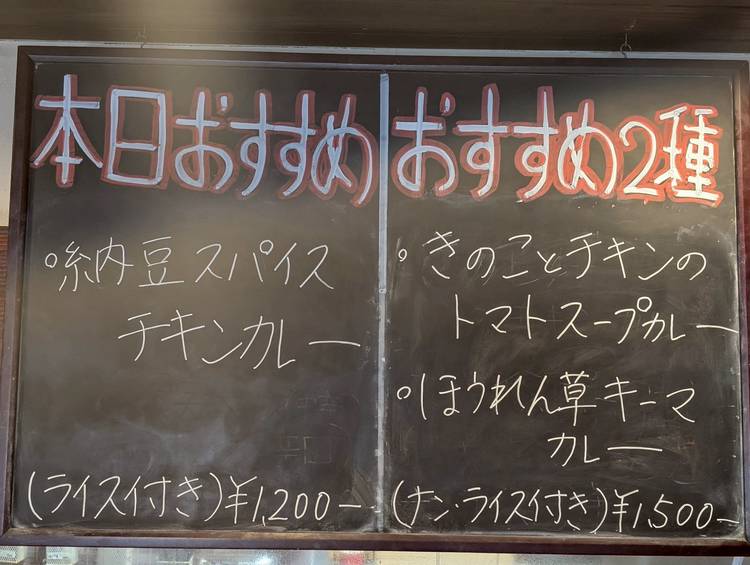 本日おすすめ
・納豆スパイス
チキンカレー
(ライス付き)¥1,200ー
おすすめ2種
・きのことチキンの
トマトスープカレー
・ほうれん草キーマ
カレー
(ナン・ライス付き)¥1,500ー